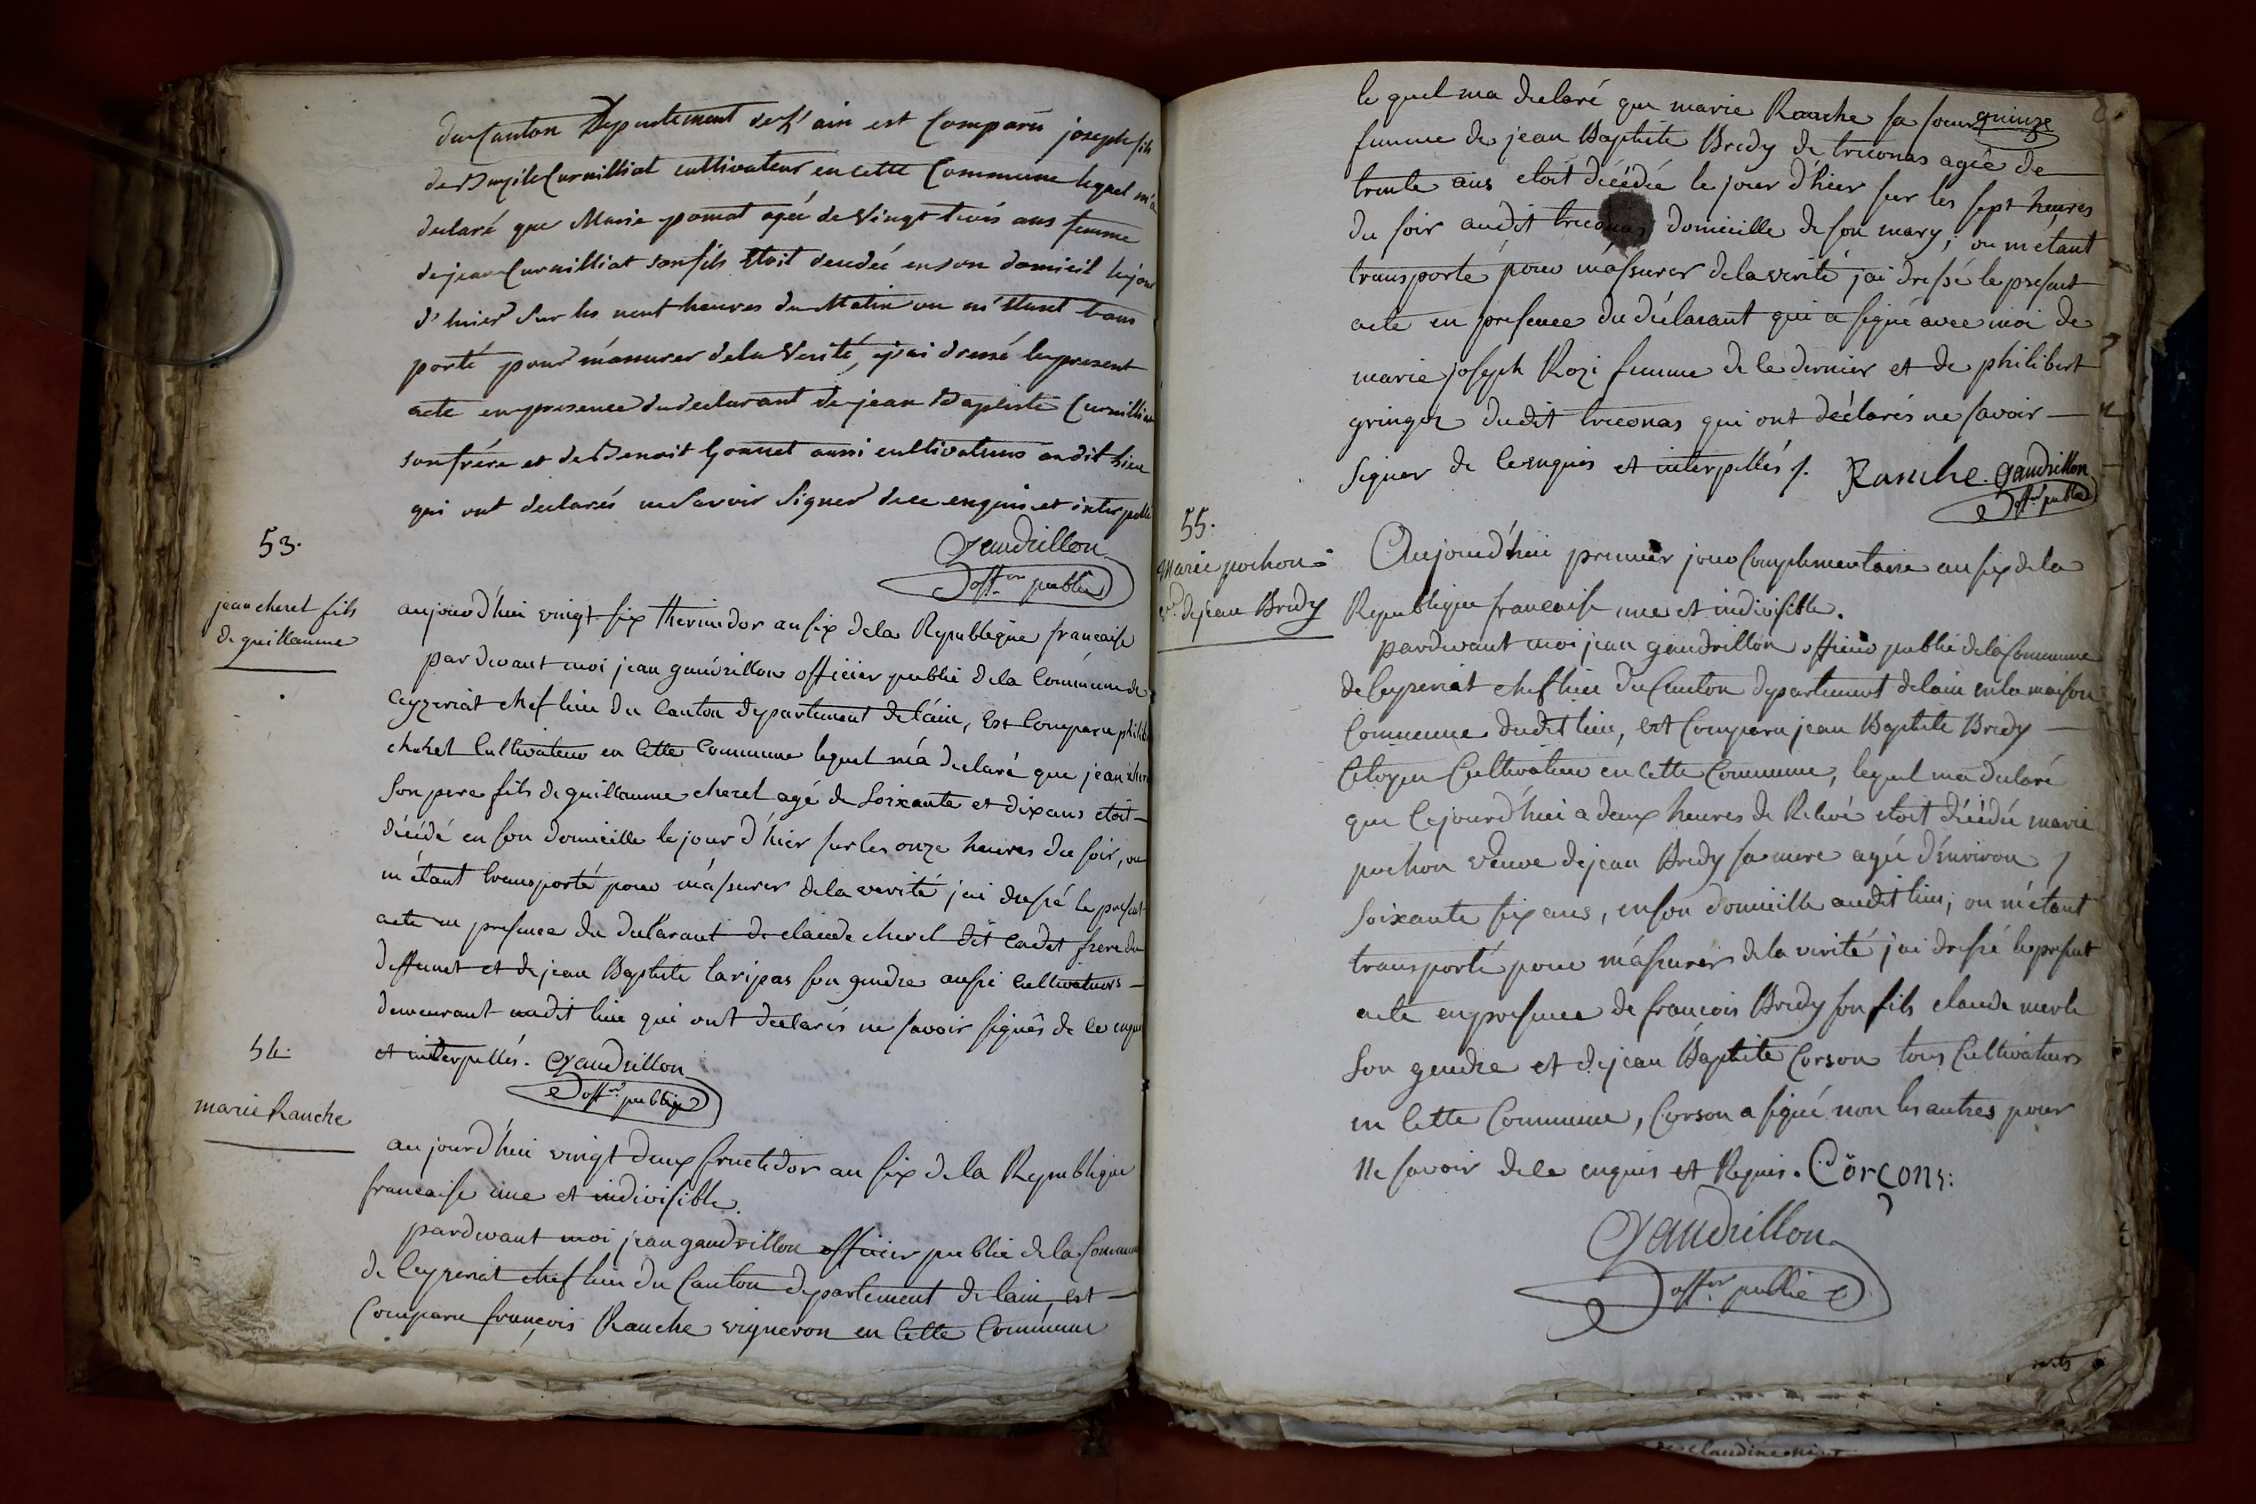 du Canton Departement de L'ain est Comparu joseph fils
de Curnilliat cultivateur en cette Commune lequel m'a
declaré que Marie pomat agée de Vingt trois ans femme
de jean Curnilliat son fils Etoit decedée en son domicil le jour
d'hier Sur les neuf heures du Matin ou m'Etant trans
porté pour m'assurer de la Verité, j'ai dressé le present
acte en presence du declarant de jean Baptiste Curnilliat
son frére et de Benoit Gonnet aussi cultivateurs audit Lieu
qui ont declarés ne Savoir Signer de ce enquis et interpellé
Gaudrillon
offer public
53.
jean cherel fils
de guillaume
aujourd'hui vingt six thermidor an six de la Republique francaise
pardevant moi jean gaudrillon officier public de la Commune de
Ceyzeriat chef lieu du Canton departement de l'ain, Est Comparu philib
cherel Cultivateur en Cette Commune lequel m'a declaré que jean cherel
Son pere fils de guillaume cherel agé de Soixante et dix ans etoit
décédé en son domicille le jour d'hier sur les onze heures du soir, ou
m'étant transporté pour m'assurer de la verité j'ai dressé le present
acte en presence du declarant de claude cherel dit Cadet frere du
deffunt et de jean Baptiste laripas son gendre aussi Cultivateurs
demeurant audit lieu qui ont declarés ne savoir signés de ce enquis
et interpellés. Gaudrillon
offer public
54.
marie Ranche
aujourd'hui vingt deux fructidor an six de la Republique
francaise une et indivisible.
pardevant moi jean gaudrillon officier public de la Commune
de Ceyzeriat chef lieu du Canton departement de lain, est
Comparu françois Ranche vigneron en Cette Commune
quinze
le quel ma declaré que marie Ranche sa soeur
femme de jean Baptiste Bredy de treconas agée de
trente ans etoit décédée le jour d'hier sur les sept heures
du soir audit treconas domicille de son mary; ou m'etant
transporté pour m'assurer de la verité j'ai dressé le present
acte en presence du déclarant qui a signé avec moi de
marie joseph Rozi femme de ce dernier et de philibert
gringoz dudit treconas qui ont déclarés ne savoir
signer de ce enquis et interpellés /. Ranche. Gaudrillon
offer public
55.
Marie pochon
Ve. de jean Bredy
Aujourd'hui premier jour Complementaire an six de la
Republique francaise une et indivisible.
pardevant moi jean gaudrillon officier public de la Commune
de Ceyzeriat chef lieu du Canton departement de lain en la maison
Commune dudit lieu, est Comparu jean Baptiste Bredy
Citoyen Cultivateur en Cette Commune, lequel ma declaré
que Cejourd'hui a deux heures de Relevé etoit décédée marie
pochon veuve de jean Bredy sa mere agée d'environ
Soixante six ans, en son domicille audit lieu, ou m'étant
transporté pour m'assurer de la verité j'ai dressé le present
acte en presence de francois Bredy son fils claude merle
Son gendre et de jean Baptiste Corson tous Cultivateurs
en Cette Commune, Corson a signé non les autres pour
Ne savoir de ce enquis et Requis. Corçon:
Gaudrillon
offer public